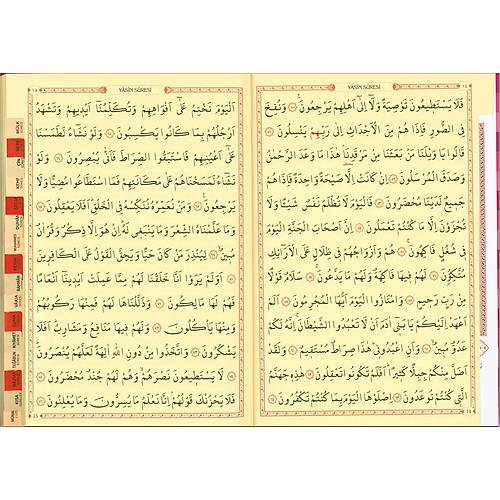 YÂSÎN SÛRESİ
فَلَا يَسْتَطِيعُونَ تَوْصِيَةً وَلَٓا اِلٰٓى اَهْلِهِمْ يَرْجِعُونَ ۟ وَنُفِخَ
فِي الصُّورِ فَاِذَا هُمْ مِنَ الْاَجْدَاثِ اِلٰى رَبِّهِمْ يَنْسِلُونَ
قَالُوا يَا وَيْلَنَا مَنْ بَعَثَنَا مِنْ مَرْقَدِنَا هٰذَا مَا وَعَدَ الرَّحْمٰنُ
وَصَدَقَ الْمُرْسَلُونَ اِنْ كَانَتْ اِلَّا صَيْحَةً وَاحِدَةً فَاِذَا هُمْ
جَمِيعٌ لَدَيْنَا مُحْضَرُونَ فَالْيَوْمَ لَا تُظْلَمُ نَفْسٌ شَيْـًٔا وَلَا
تُجْزَوْنَ اِلَّا مَا كُنْتُمْ تَعْمَلُونَ اِنَّ اَصْحَابَ الْجَنَّةِ الْيَوْمَ
فِي شُغُلٍ فَاكِهُونَ هُمْ وَاَزْوَاجُهُمْ فِي ظِلَالٍ عَلَى الْاَرَٓائِكِ
مُتَّكِؤُ۫نَ لَهُمْ فِيهَا فَاكِهَةٌ وَلَهُمْ مَا يَدَّعُونَ سَلَامٌ قَوْلًا
مِنْ رَبٍّ رَحِيمٍ وَامْتَازُوا الْيَوْمَ اَيُّهَا الْمُجْرِمُونَ اَلَمْ
اَعْهَدْ اِلَيْكُمْ يَا بَنِٓي اٰدَمَ اَنْ لَا تَعْبُدُوا الشَّيْطَانَ اِنَّهُ لَكُمْ
عَدُوٌّ مُبِينٌ وَاَنِ اعْبُدُونِي هٰذَا صِرَاطٌ مُسْتَقِيمٌ وَلَقَدْ
اَضَلَّ مِنْكُمْ جِبِلًّا كَثِيرًا اَفَلَمْ تَكُونُوا تَعْقِلُونَ هٰذِهِ جَهَنَّمُ
الَّتِي كُنْتُمْ تُوعَدُونَ اِصْلَوْهَا الْيَوْمَ بِمَا كُنْتُمْ تَكْفُرُونَ
14
YÂSÎN SÛRESİ
اَلْيَوْمَ نَخْتِمُ عَلٰٓى اَفْوَاهِهِمْ وَتُكَلِّمُنَٓا اَيْدِيهِمْ وَتَشْهَدُ
اَرْجُلُهُمْ بِمَا كَانُوا يَكْسِبُونَ وَلَوْ نَشَٓاءُ لَطَمَسْنَا
عَلٰٓى اَعْيُنِهِمْ فَاسْتَبَقُوا الصِّرَاطَ فَاَنّٰى يُبْصِرُونَ وَلَوْ
نَشَٓاءُ لَمَسَخْنَاهُمْ عَلٰى مَكَانَتِهِمْ فَمَا اسْتَطَاعُوا مُضِيًّا وَلَا
يَرْجِعُونَ وَمَنْ نُعَمِّرْهُ نُنَكِّسْهُ فِي الْخَلْقِ اَفَلَا يَعْقِلُونَ
وَمَا عَلَّمْنَاهُ الشِّعْرَ وَمَا يَنْبَغِي لَهُ اِنْ هُوَ اِلَّا ذِكْرٌ وَقُرْاٰنٌ
مُبِينٌ لِيُنْذِرَ مَنْ كَانَ حَيًّا وَيَحِقَّ الْقَوْلُ عَلَى الْكَافِرِينَ
اَوَلَمْ يَرَوْا اَنَّا خَلَقْنَا لَهُمْ مِمَّا عَمِلَتْ اَيْدِينَٓا اَنْعَامًا
فَهُمْ لَهَا مَالِكُونَ وَذَلَّلْنَاهَا لَهُمْ فَمِنْهَا رَكُوبُهُمْ
وَمِنْهَا يَأْكُلُونَ وَلَهُمْ فِيهَا مَنَافِعُ وَمَشَارِبُ اَفَلَا
يَشْكُرُونَ وَاتَّخَذُوا مِنْ دُونِ اللّٰهِ اٰلِهَةً لَعَلَّهُمْ يُنْصَرُونَ
لَا يَسْتَطِيعُونَ نَصْرَهُمْ وَهُمْ لَهُمْ جُنْدٌ مُحْضَرُونَ
فَلَا يَحْزُنْكَ قَوْلُهُمْ اِنَّا نَعْلَمُ مَا يُسِرُّونَ وَمَا يُعْلِنُونَ
15